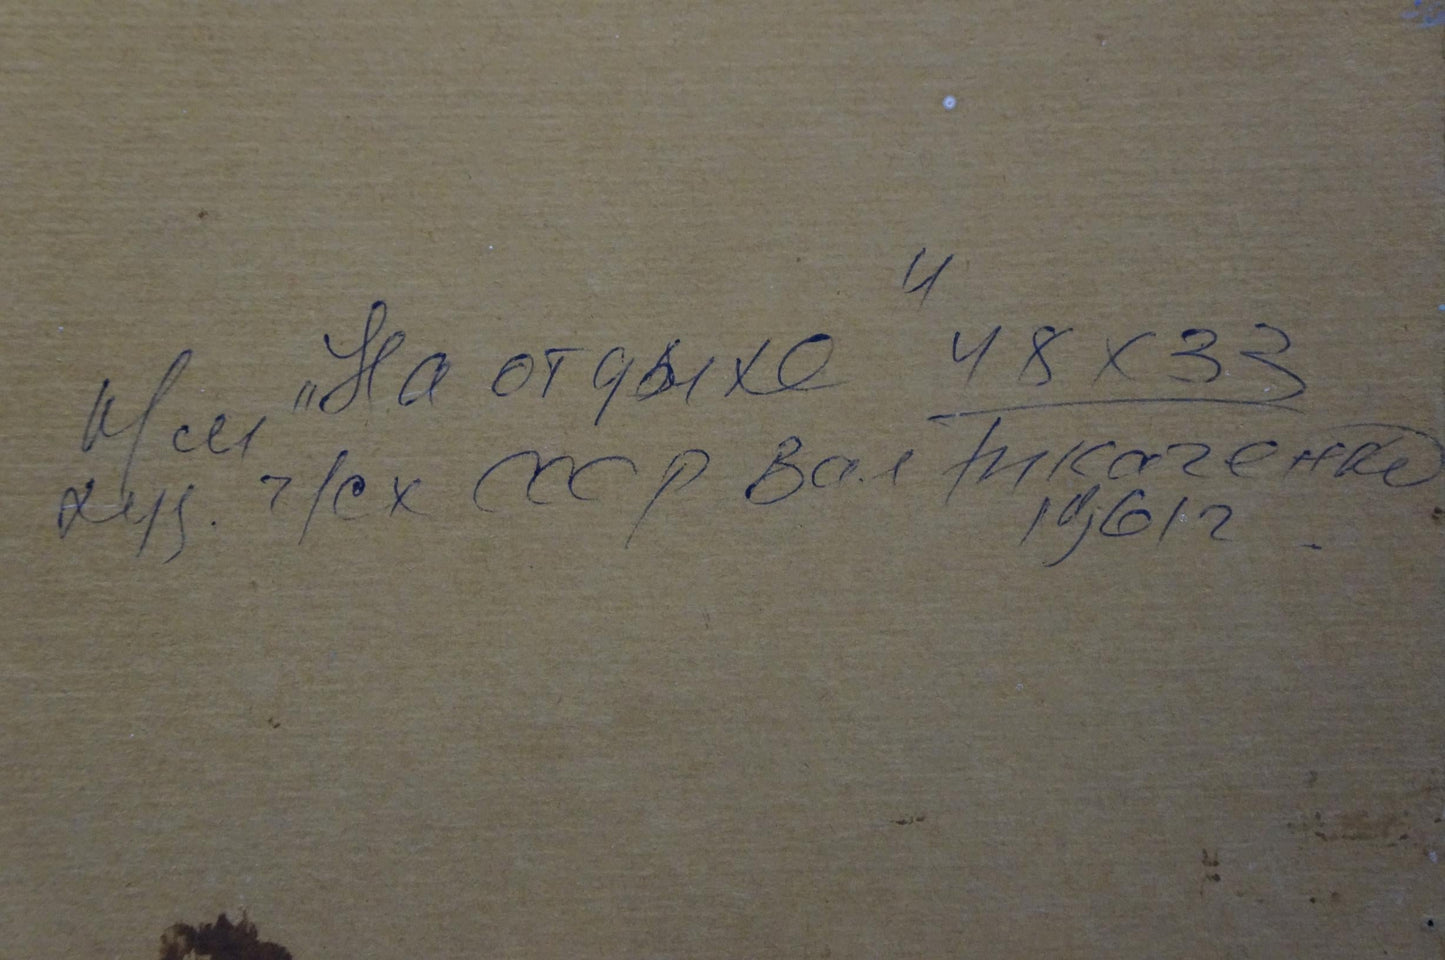 К/м „На отдыхе" 48х33
худ. ч/сх СССР Вал Ткаченко
1961г